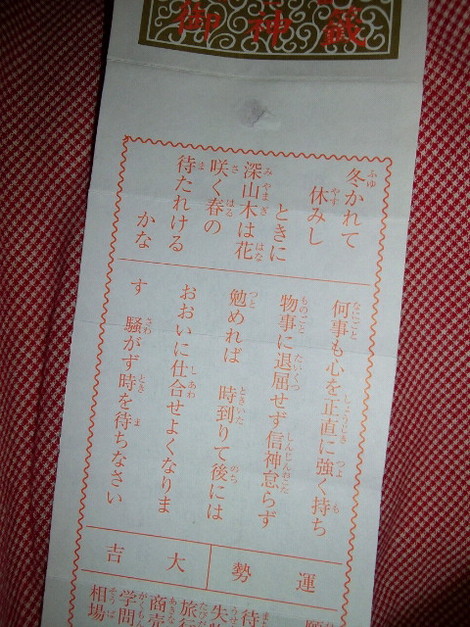 御神籤
冬かれて
休みし
ときに
深山木は花
咲く春の
待たれける
かな
何事も心を正直に強く持ち
物事に退屈せず信神怠らず
勉めれば 時到りて後には
おおいに仕合せよくなりま
す 騒がず時を待ちなさい
運勢
大吉
願
待
失
旅行
商売
学問
相場